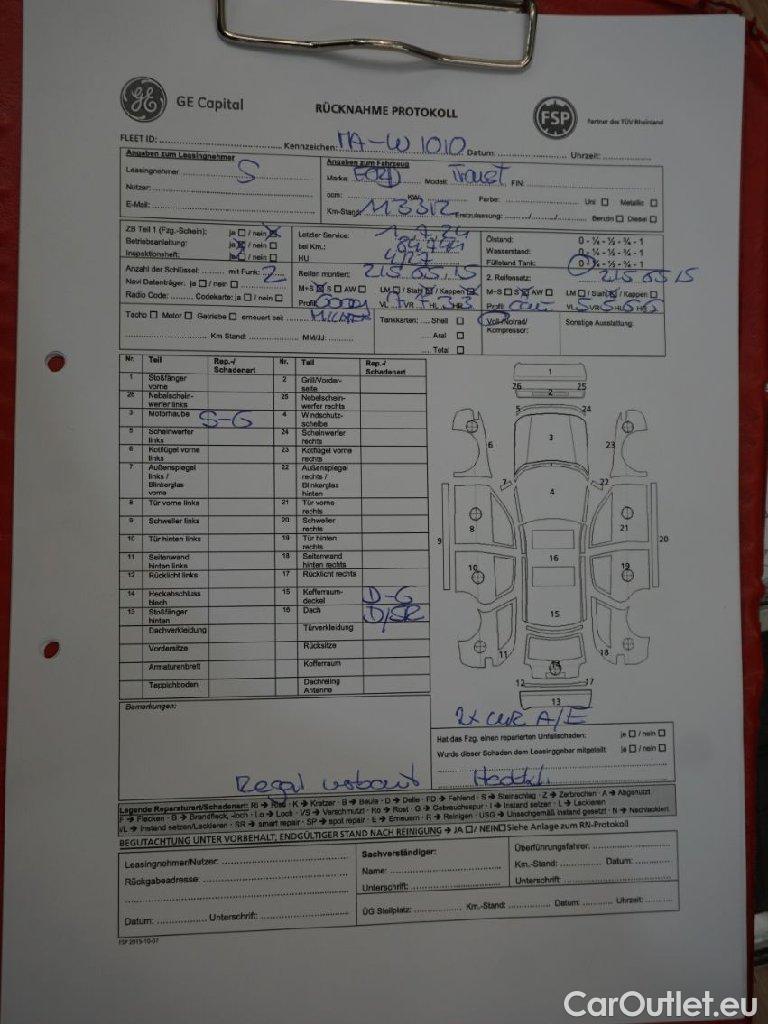 GE Capital
RÜCKNAHME PROTOKOLL
FSP
Partner des TÜV Rheinland
FLEET ID: Kennzeichen: MA-W 1010 Datum: Uhrzeit:
Angaben zum Leasingnehmer
Angaben zum Fahrzeug
Leasingnehmer S
Marke: FORD Modell: Transit FIN:
Nutzer:
ccm: KW: Farbe: Uni Metallic
E-Mail:
Km-Stand: 113312 Erstzulassung: Benzin Diesel
ZB Teil 1 (Fzg.-Schein): ja / nein
Letzter Service: 1.7.24
Ölstand: 0 - ¼ - ½ - ¾ - 1
Betriebsanleitung: ja / nein
bei Km.:
Wasserstand: 0 - ¼ - ½ - ¾ - 1
Inspektionsheft: ja / nein
HU 4/27
Füllstand Tank: 0 - ¼ - ½ - ¾ - 1
Anzahl der Schlüssel: mit Funk: 2
Reifen montiert: 215.65.15
2. Reifensatz: 215 65 15
Navi Datenträger: ja / nein
M+S S AW LM Stahl Kappen
M-S S AW LM Stahl Kappen
Radio Code: Codekarte: ja / nein
Profil VL VR HL HR
Profil VL VR HL HR
Tacho Motor Getriebe erneuert bei
Km Stand: MM/JJ:
Tankkarten: Shell
Aral
Total
Voll-/Notrad/
Kompressor:
Sonstige Ausstattung:
Nr. Teil Rep.-/ Schadenart Nr. Teil Rep.-/ Schadenart
1 Stoßfänger vorne 2 Grill/Vorderseite
26 Nebelscheinwerfer links 25 Nebelscheinwerfer rechts
3 Motorhaube S-G 4 Windschutzscheibe
5 Scheinwerfer links 24 Scheinwerfer rechts
6 Kotflügel vorne links 23 Kotflügel vorne rechts
7 Außenspiegel links / Blinkerglas vorne 22 Außenspiegel rechts / Blinkerglas hinten
8 Tür vorne links 21 Tür vorne rechts
9 Schweller links 20 Schweller rechts
10 Tür hinten links 19 Tür hinten rechts
11 Seitenwand hinten links 18 Seitenwand hinten rechts
12 Rücklicht links 17 Rücklicht rechts
14 Heckabschluss blech 15 Kofferraumdeckel D-G
13 Stoßfänger hinten 16 Dach D/SR
Dachverkleidung Türverkleidung
Vordersitze Rücksitze
Armaturenbrett Kofferraum
Teppichboden Dachreling Antenne
Bemerkungen:
Hat das Fzg. einen reparierten Unfallschaden: ja / nein
Wurde dieser Schaden dem Leasinggeber mitgeteilt ja / nein
Legende Reparaturart/Schadenart: Ri → Riss · K → Kratzer · B → Beule · D → Delle · FD → Fehlend · S → Steinschlag · Z → Zerbrochen · A → Abgenutzt
F → Flecken · B → Brandfleck, -loch · Lo → Loch · VS → Verschmutzt · Ro → Rost · G → Gebrauchsspur · I → Instand setzen · L → Lackieren
VL → Instand setzen/Lackieren · SR → smart repair · SP → spot repair · E → Erneuern · R → Reinigen · USG → Unsachgemäß instand gesetzt · N → Nachlackiert
BEGUTACHTUNG UNTER VORBEHALT, ENDGÜLTIGER STAND NACH REINIGUNG → JA / NEIN Siehe Anlage zum RN-Protokoll
Leasingnehmer/Nutzer:
Sachverständiger:
Überführungsfahrer:
Rückgabeadresse:
Name:
Km.-Stand: Datum:
Unterschrift:
Unterschrift:
Datum: Unterschrift:
ÜG Stellplatz: Km.-Stand: Datum: Uhrzeit:
FSP 2015-10-07
CarOutlet.eu